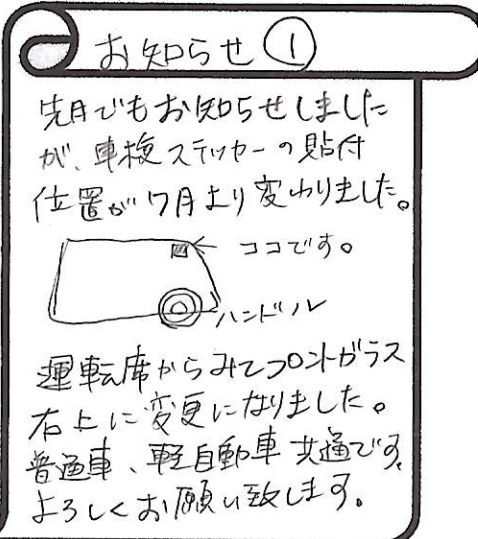 お知らせ①
先月でもお知らせしました
が、車検ステッカーの貼付
位置が7月より変わりました。
ココです。
ハンドル
運転席からみてフロントガラス
右上に変更になりました。
普通車、軽自動車共通です。
よろしくお願い致します。